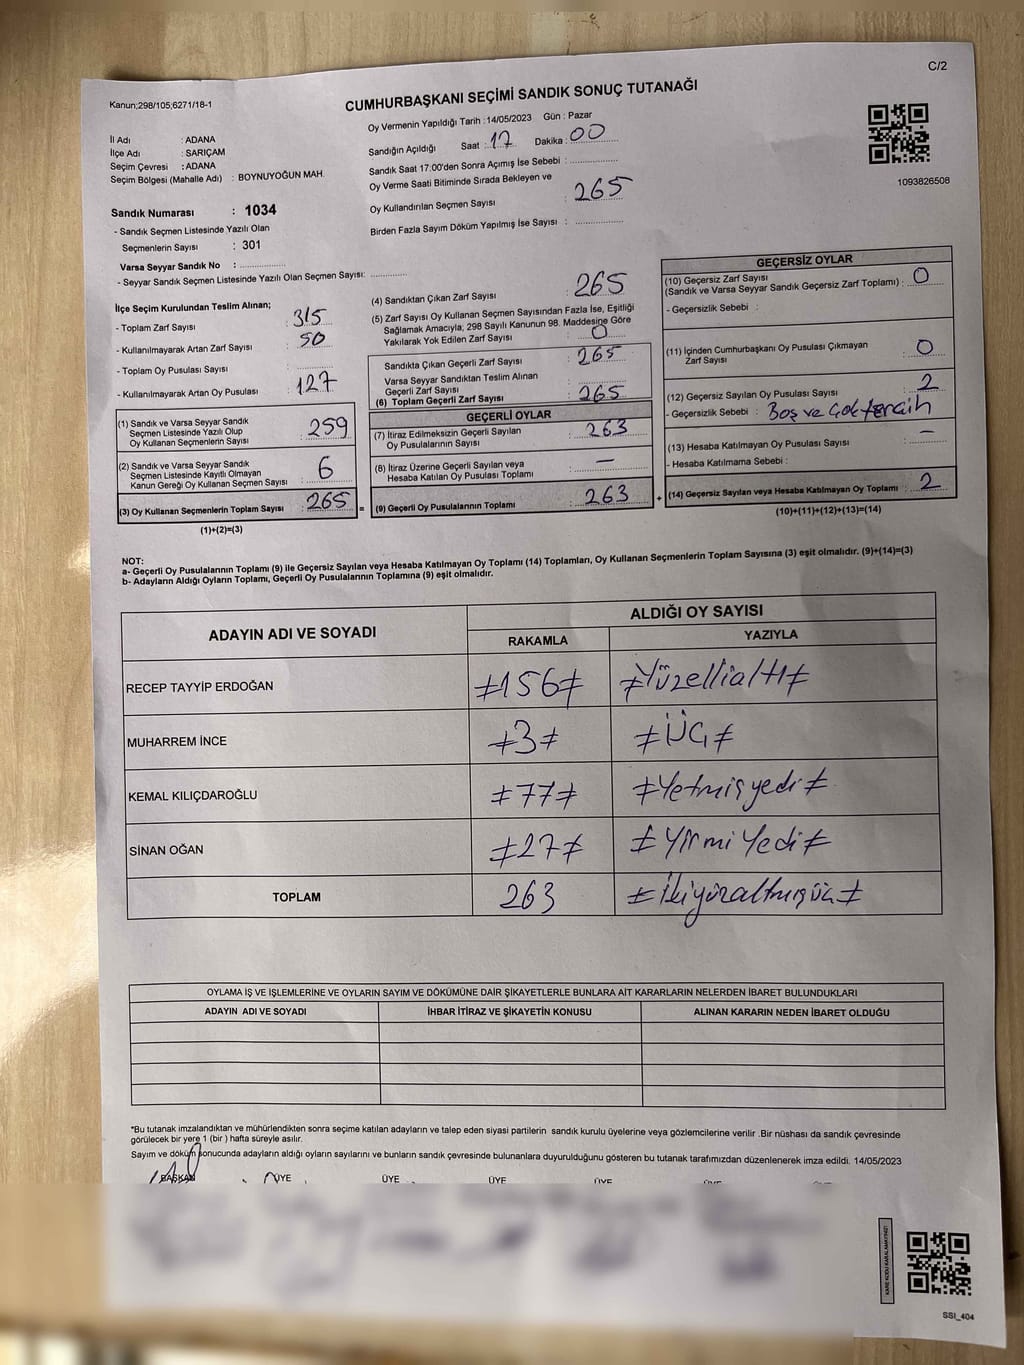 C/2
Kanun;298/105;6271/18-1
CUMHURBAŞKANI SEÇİMİ SANDIK SONUÇ TUTANAĞI
İl Adı : ADANA
İlçe Adı : SARIÇAM
Seçim Çevresi : ADANA
Seçim Bölgesi (Mahalle Adı) : BOYNUYOĞUN MAH.
Oy Vermenin Yapıldığı Tarih :14/05/2023 Gün : Pazar
Sandığın Açıldığı Saat : 17 Dakika : 00
Sandık Saat 17:00'den Sonra Açımış İse Sebebi :
Oy Verme Saati Bitiminde Sırada Bekleyen ve
Oy Kullandırılan Seçmen Sayısı : 265
Birden Fazla Sayım Döküm Yapılmış İse Sayısı :
1093826508
Sandık Numarası : 1034
- Sandık Seçmen Listesinde Yazılı Olan
Seçmenlerin Sayısı : 301
Varsa Seyyar Sandık No :
- Seyyar Sandık Seçmen Listesinde Yazılı Olan Seçmen Sayısı:
İlçe Seçim Kurulundan Teslim Alınan;
- Toplam Zarf Sayısı : 315
- Kullanılmayarak Artan Zarf Sayısı : 50
- Toplam Oy Pusulası Sayısı :
- Kullanılmayarak Artan Oy Pusulası : 127
(1) Sandık ve Varsa Seyyar Sandık
Seçmen Listesinde Yazılı Olup
Oy Kullanan Seçmenlerin Sayısı : 259
(2) Sandık ve Varsa Seyyar Sandık
Seçmen Listesinde Kayıtlı Olmayan
Kanun Gereği Oy Kullanan Seçmen Sayısı : 6
(3) Oy Kullanan Seçmenlerin Toplam Sayısı : 265 =
(1)+(2)=(3)
(4) Sandıktan Çıkan Zarf Sayısı : 265
(5) Zarf Sayısı Oy Kullanan Seçmen Sayısından Fazla İse, Eşitliği
Sağlamak Amacıyla; 298 Sayılı Kanunun 98. Maddesine Göre
Yakılarak Yok Edilen Zarf Sayısı : 0
Sandıkta Çıkan Geçerli Zarf Sayısı : 265
Varsa Seyyar Sandıktan Teslim Alınan
Geçerli Zarf Sayısı :
(6) Toplam Geçerli Zarf Sayısı : 265
GEÇERLİ OYLAR
(7) İtiraz Edilmeksizin Geçerli Sayılan
Oy Pusulalarının Sayısı : 263
(8) İtiraz Üzerine Geçerli Sayılan veya
Hesaba Katılan Oy Pusulası Toplamı : —
(9) Geçerli Oy Pusulalarının Toplamı : 263 +
GEÇERSİZ OYLAR
(10) Geçersiz Zarf Sayısı
(Sandık ve Varsa Seyyar Sandık Geçersiz Zarf Toplamı) : 0
- Geçersizlik Sebebi :
(11) İçinden Cumhurbaşkanı Oy Pusulası Çıkmayan
Zarf Sayısı : 0
(12) Geçersiz Sayılan Oy Pusulası Sayısı : 2
- Geçersizlik Sebebi : Boş ve Çok tercih
(13) Hesaba Katılmayan Oy Pusulası Sayısı : —
- Hesaba Katılmama Sebebi :
(14) Geçersiz Sayılan veya Hesaba Katılmayan Oy Toplamı : 2
(10)+(11)+(12)+(13)=(14)
NOT:
a- Geçerli Oy Pusulalarının Toplamı (9) ile Geçersiz Sayılan veya Hesaba Katılmayan Oy Toplamı (14) Toplamları, Oy Kullanan Seçmenlerin Toplam Sayısına (3) eşit olmalıdır. (9)+(14)=(3)
b- Adayların Aldığı Oyların Toplamı, Geçerli Oy Pusulalarının Toplamına (9) eşit olmalıdır.
ADAYIN ADI VE SOYADI ALDIĞI OY SAYISI
RAKAMLA YAZIYLA
RECEP TAYYİP ERDOĞAN ≠156≠ ≠Yüzellialtı≠
MUHARREM İNCE ≠3≠ ≠ÜÇ≠
KEMAL KILIÇDAROĞLU ≠77≠ ≠Yetmişyedi≠
SİNAN OĞAN ≠27≠ ≠Yirmi Yedi≠
TOPLAM 263 ≠İkiyüzaltmışüç≠
OYLAMA İŞ VE İŞLEMLERİNE VE OYLARIN SAYIM VE DÖKÜMÜNE DAİR ŞİKAYETLERLE BUNLARA AİT KARARLARIN NELERDEN İBARET BULUNDUKLARI
ADAYIN ADI VE SOYADI İHBAR İTİRAZ VE ŞİKAYETİN KONUSU ALINAN KARARIN NEDEN İBARET OLDUĞU
*Bu tutanak imzalandıktan ve mühürlendikten sonra seçime katılan adayların ve talep eden siyasi partilerin sandık kurulu üyelerine veya gözlemcilerine verilir .Bir nüshası da sandık çevresinde
görülecek bir yere 1 (bir ) hafta süreyle asılır.
Sayım ve döküm sonucunda adayların aldığı oyların sayılarını ve bunların sandık çevresinde bulunanlara duyurulduğunu gösteren bu tutanak tarafımızdan düzenlenerek imza edildi. 14/05/2023
BAŞKAN ÜYE ÜYE ÜYE ÜYE
KARE KODU KARALAMAYINIZ!
SSI_404